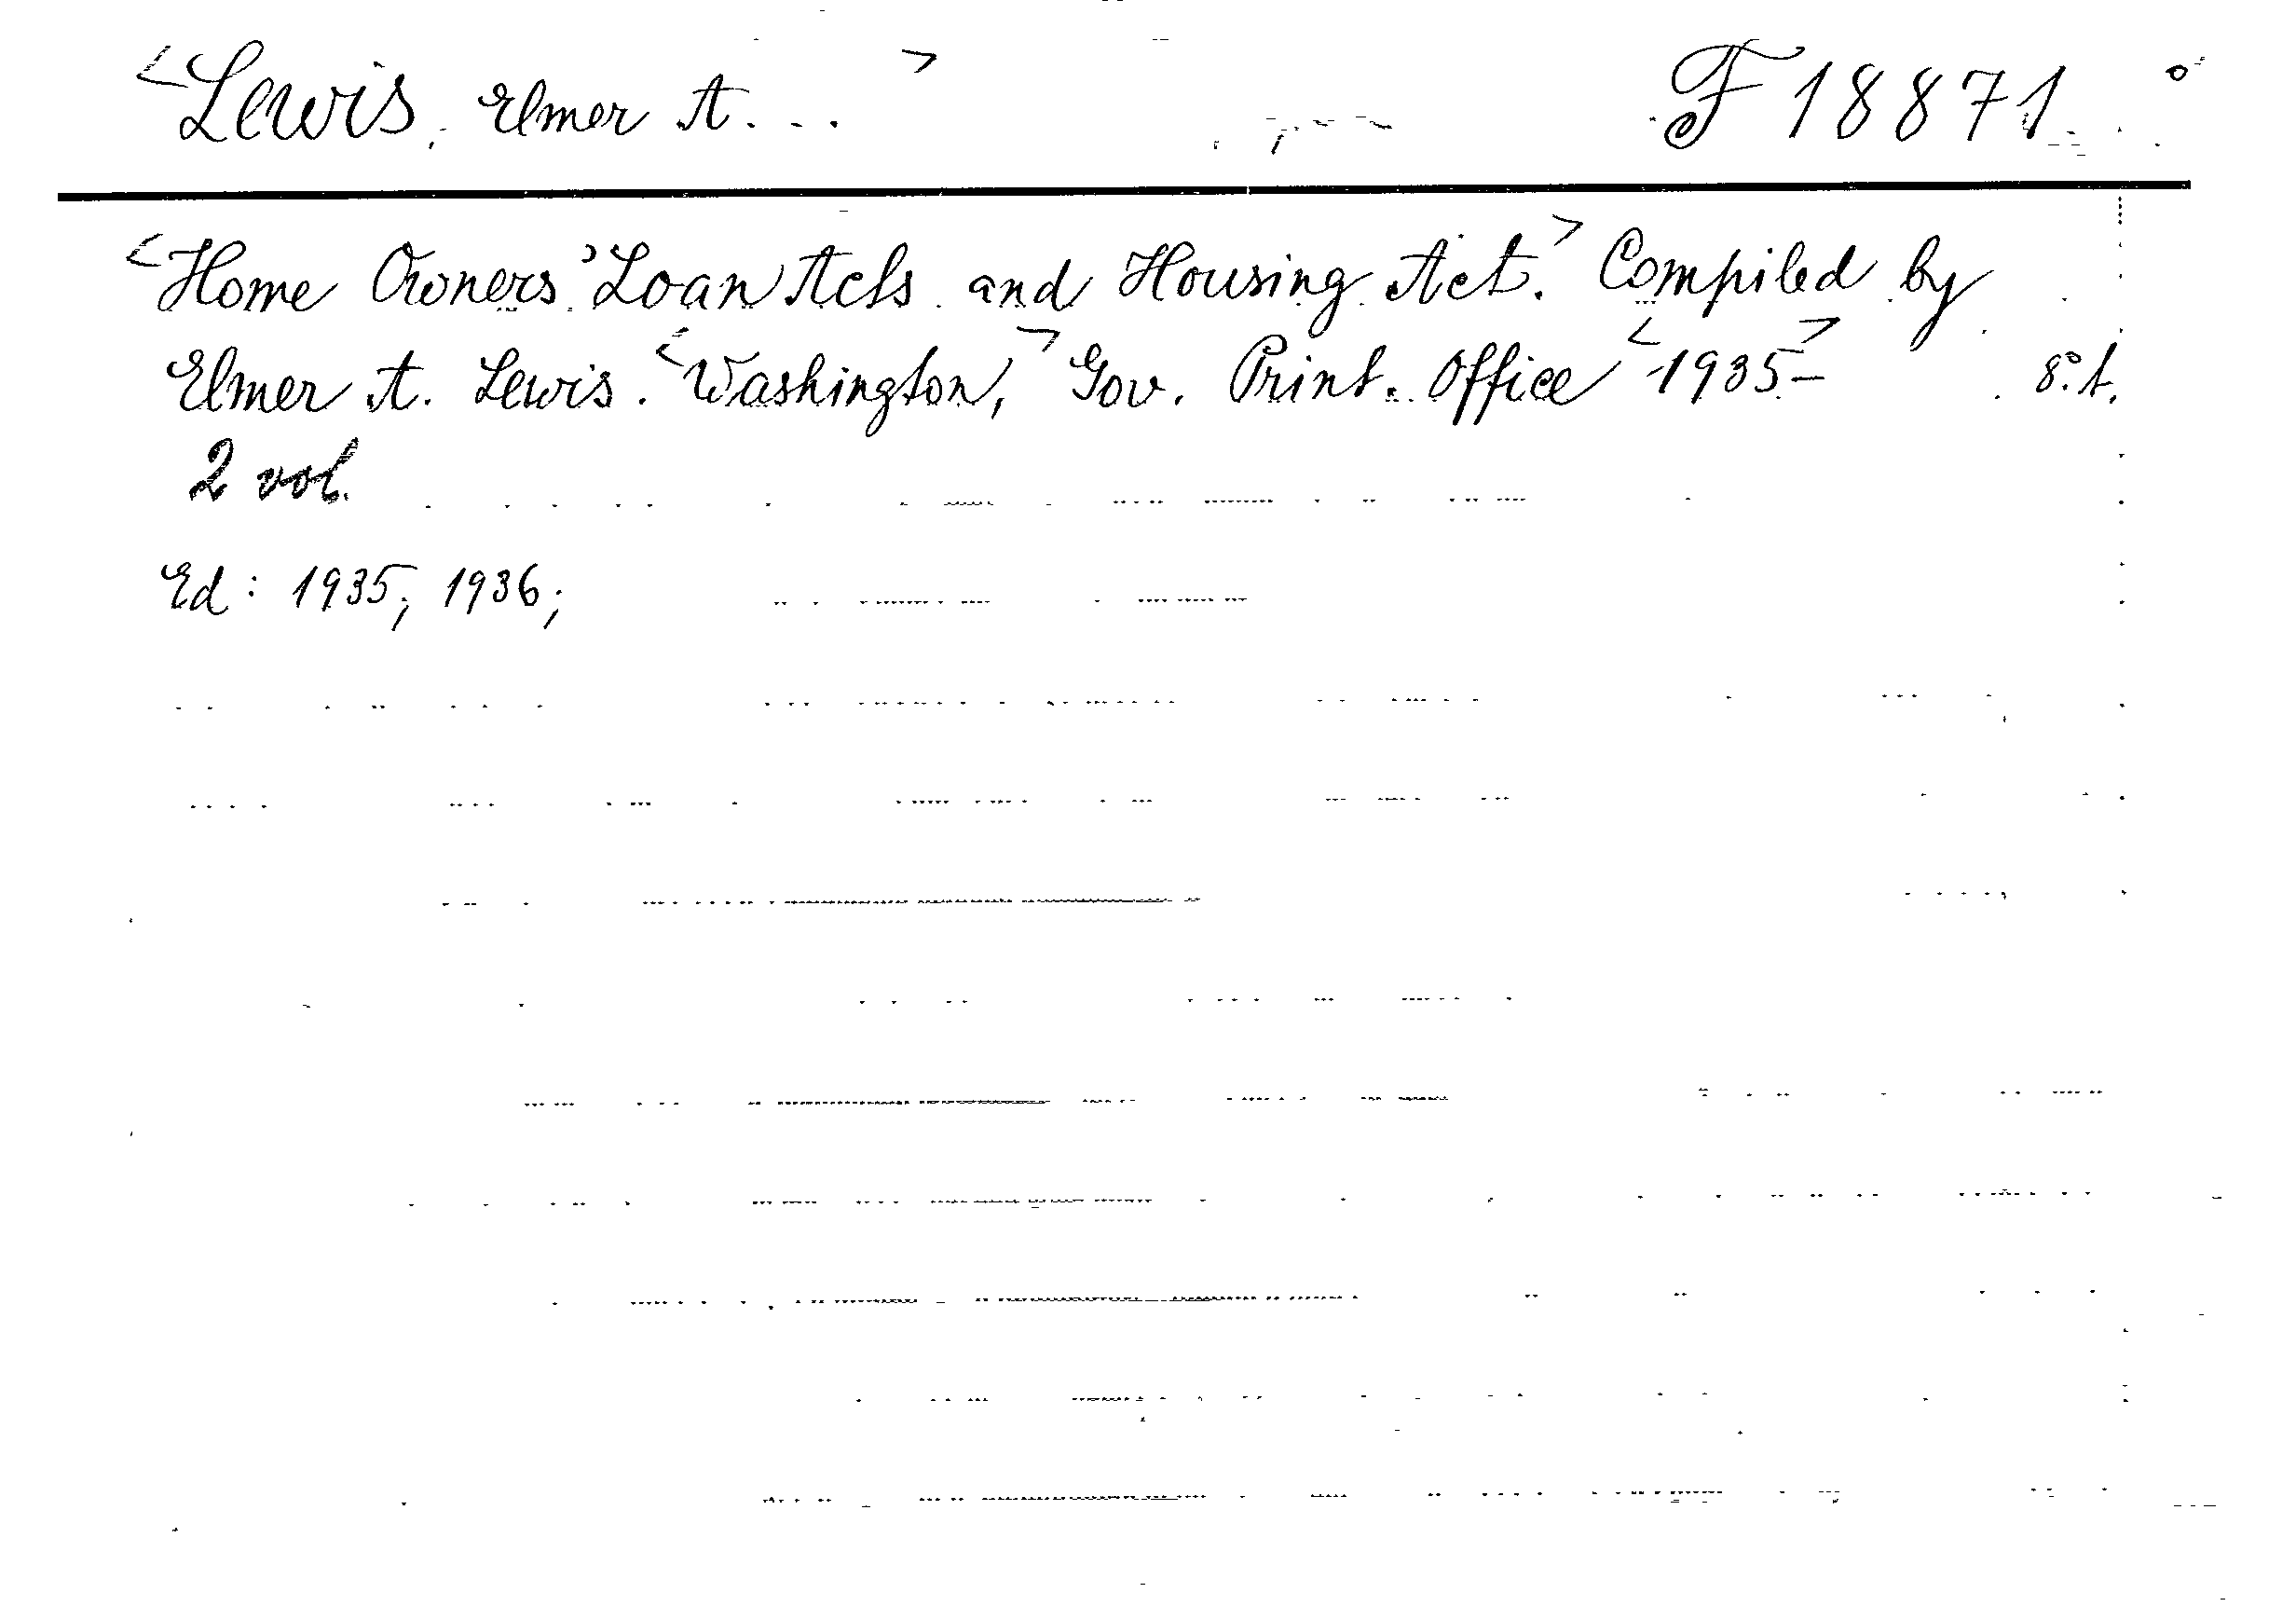 <Lewis, Elmer A...> F 18871
<Home Owners' Loan Acts and Housing Act.> Compiled by
Elmer A. Lewis. <Washington,> Gov. Print. Office <1935-> 8° t.
2 vol.
Ed: 1935; 1936;